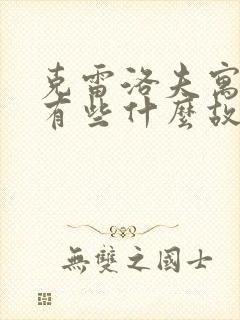 克雷洛夫寓
有些什麼故
無雙之國士